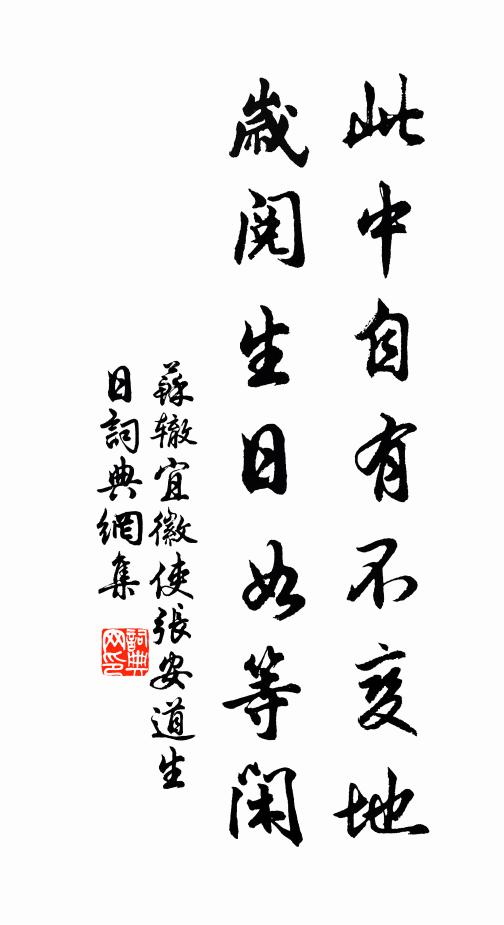 此中自有不变地
歲閱生日如等閑
蘇辙宜徽使張安道生
日詞典網集
詞典网印